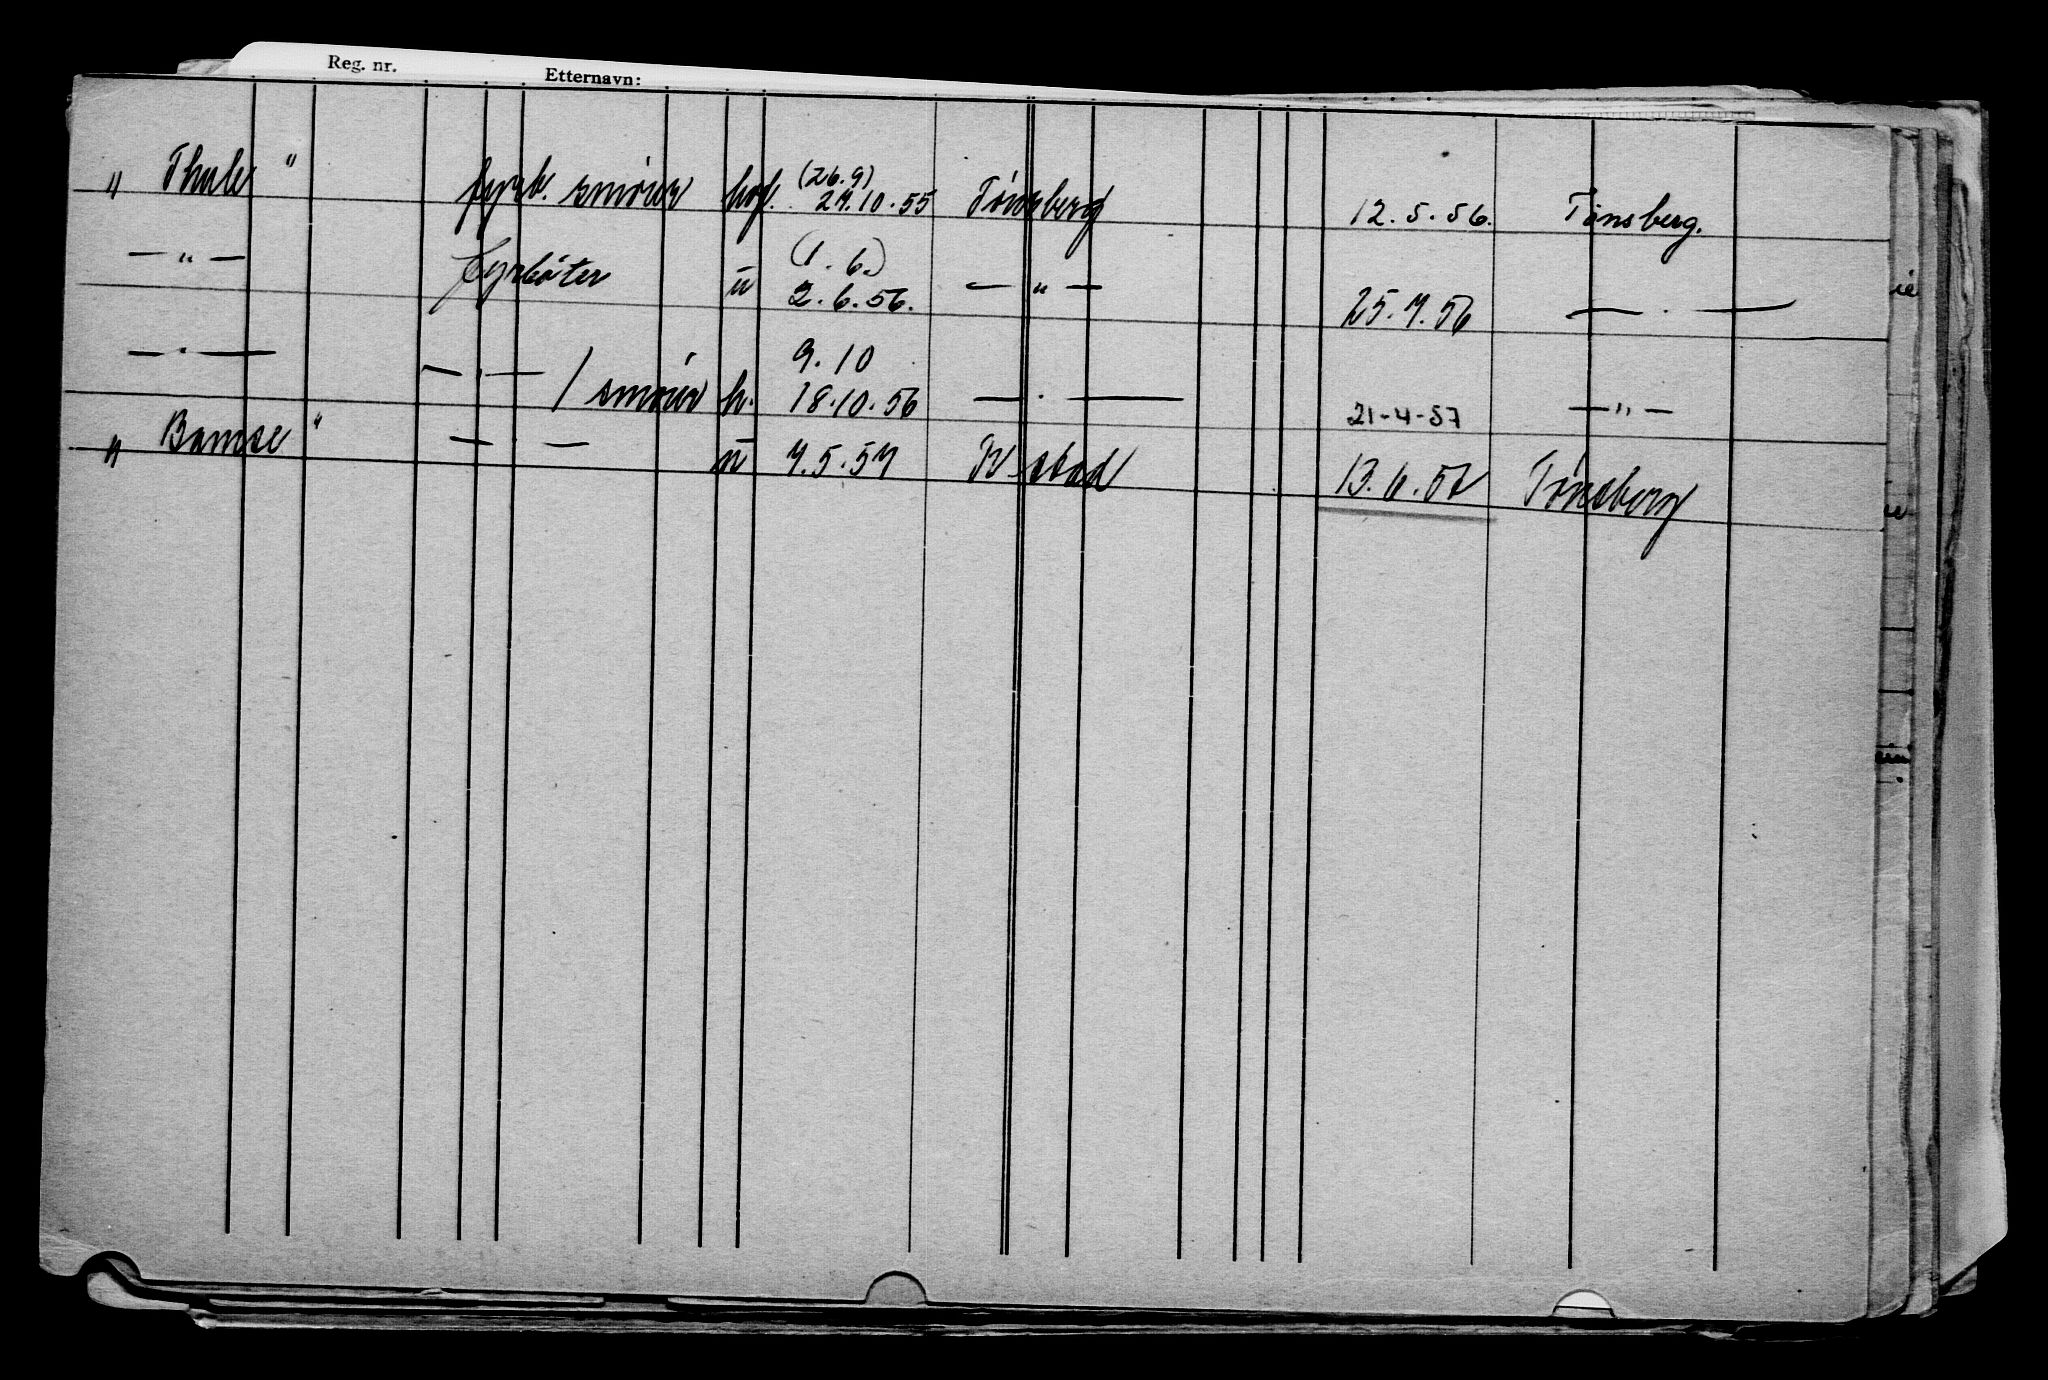 Reg. nr. Etternavn:
" Thule " fyrb. smører hvf. (26.9) 27.10.55 Tønsberg 12.5.56. Tønsberg.
— " — fyrbøter u (1.6.) 2.6.56. — " — 25.7.56 — . —
— . — — . — / smører h. 9.10 18.10.56 — . — 21-4-57 — " —
" Bamse " — . — u 7.5.57 K-stad 13.6.57 Tønsberg